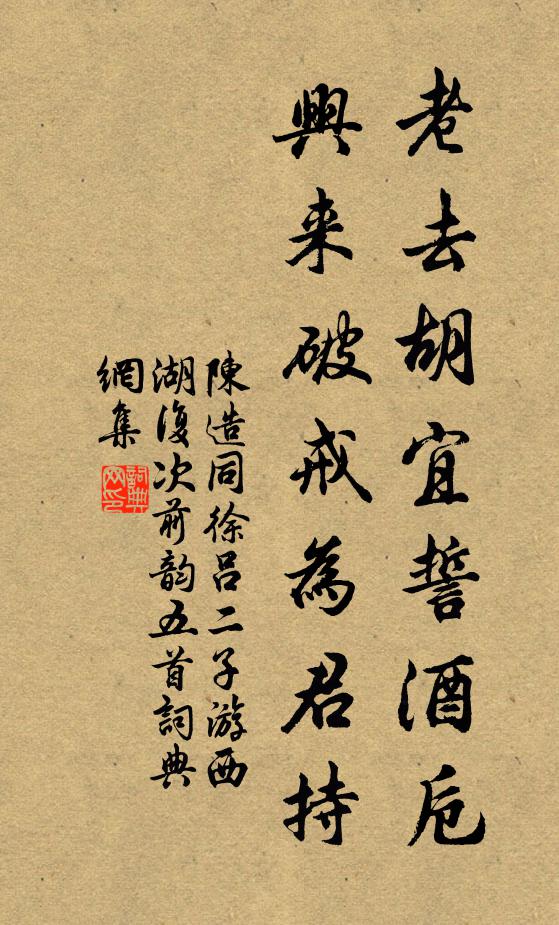 老去胡宜誓酒卮
興来破戒為君持
陳造同徐吕二子游西
湖復次前韵五首詞典
網集
詞典網印